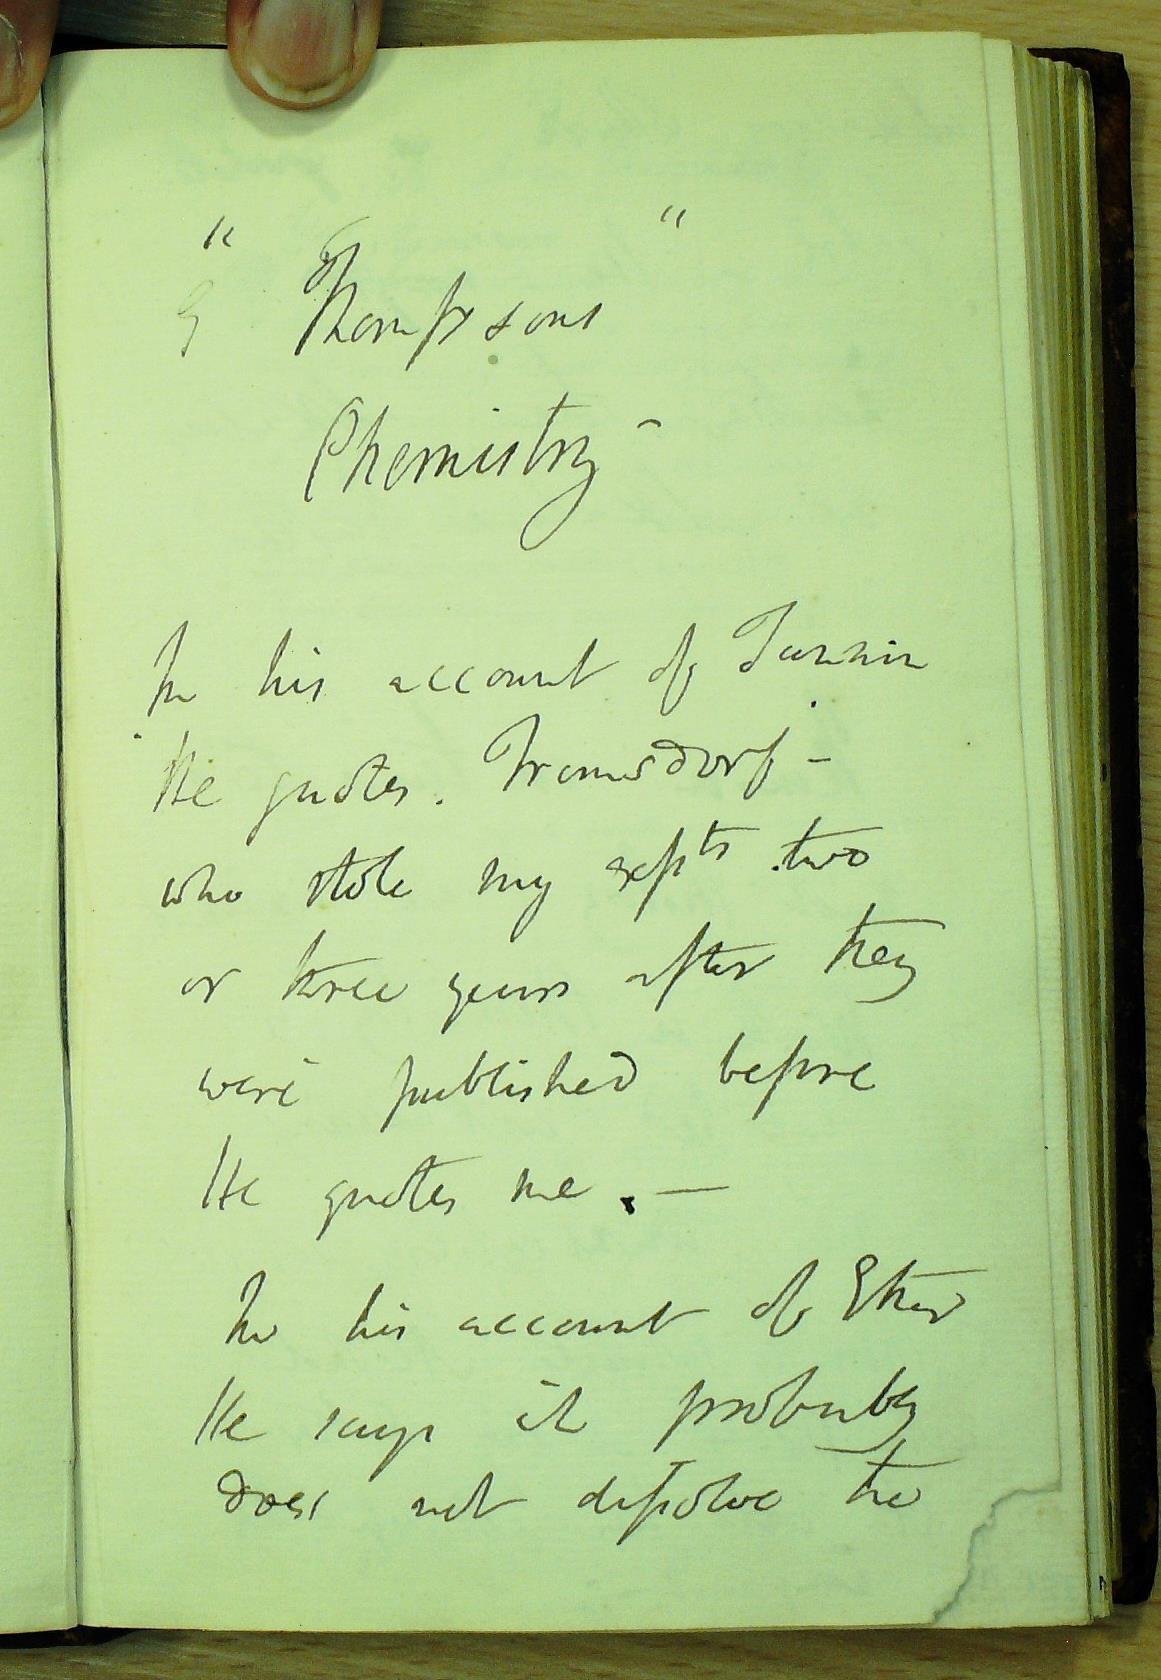 " Thompsons "
Chemistry -
In his account of Tannin
He quotes. Tromsdorf -
who stole my expts two
or three years after they
were published before
He quotes me. —
In his account of Ether
He says it probably
does not dissolve the